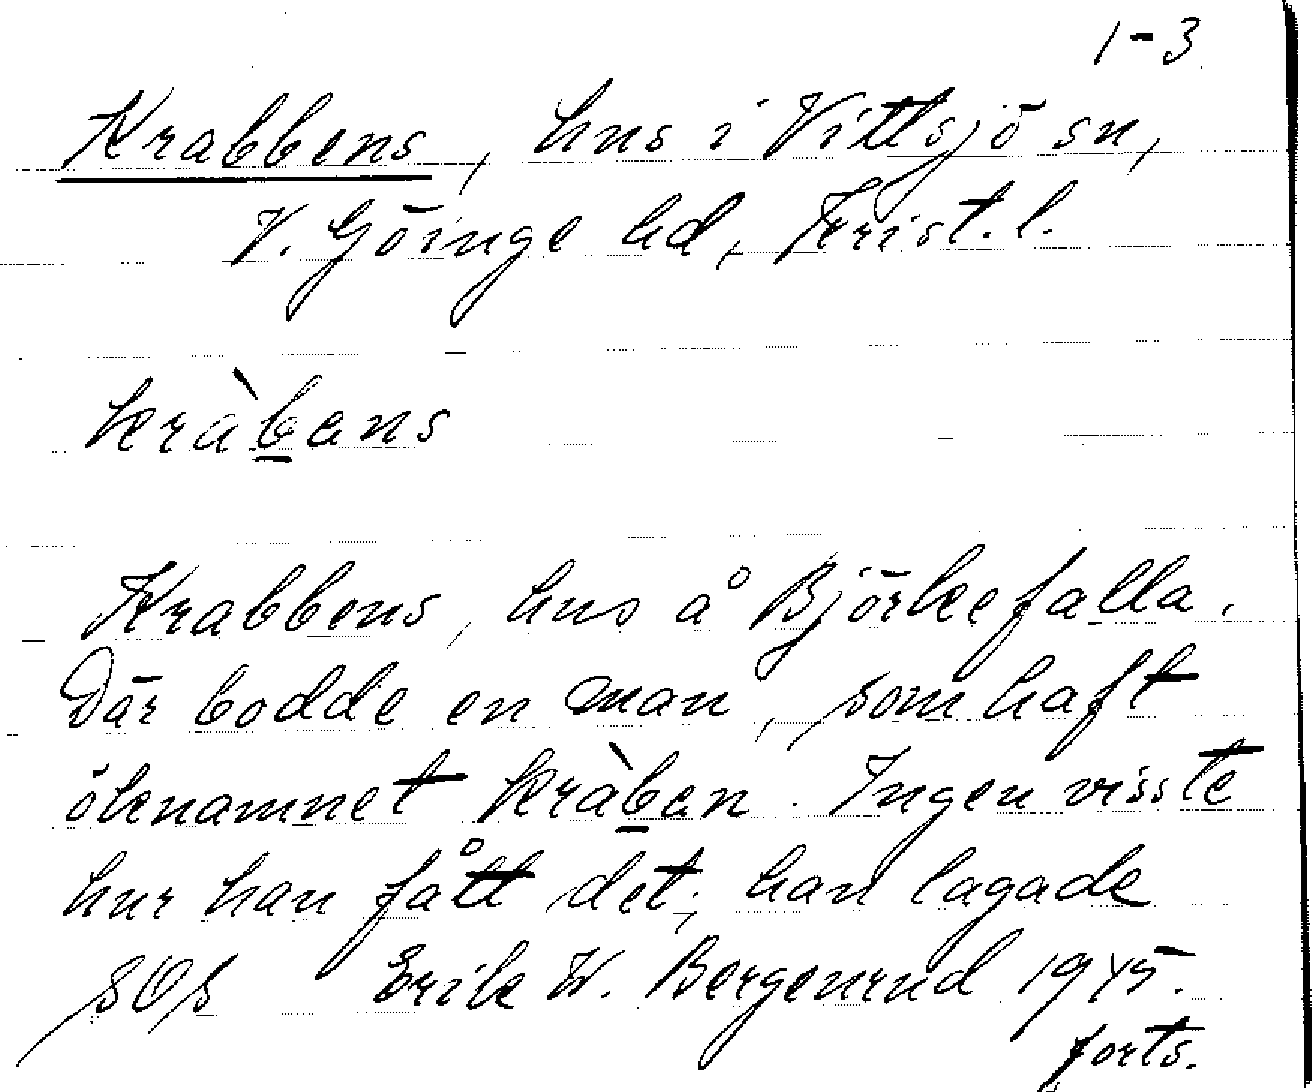 1-3
Krabbens, hus i Vittsjö sn,
V. Göinge hd, Krist. l.
kràb̲ans
Krabbens, hus å Björkefalla.
Där bodde en man, som haft
öknamnet kràb̲an. Ingen visste
hur han fått det; han lagade
SOS Erik W. Bergenrud 1945.
forts.